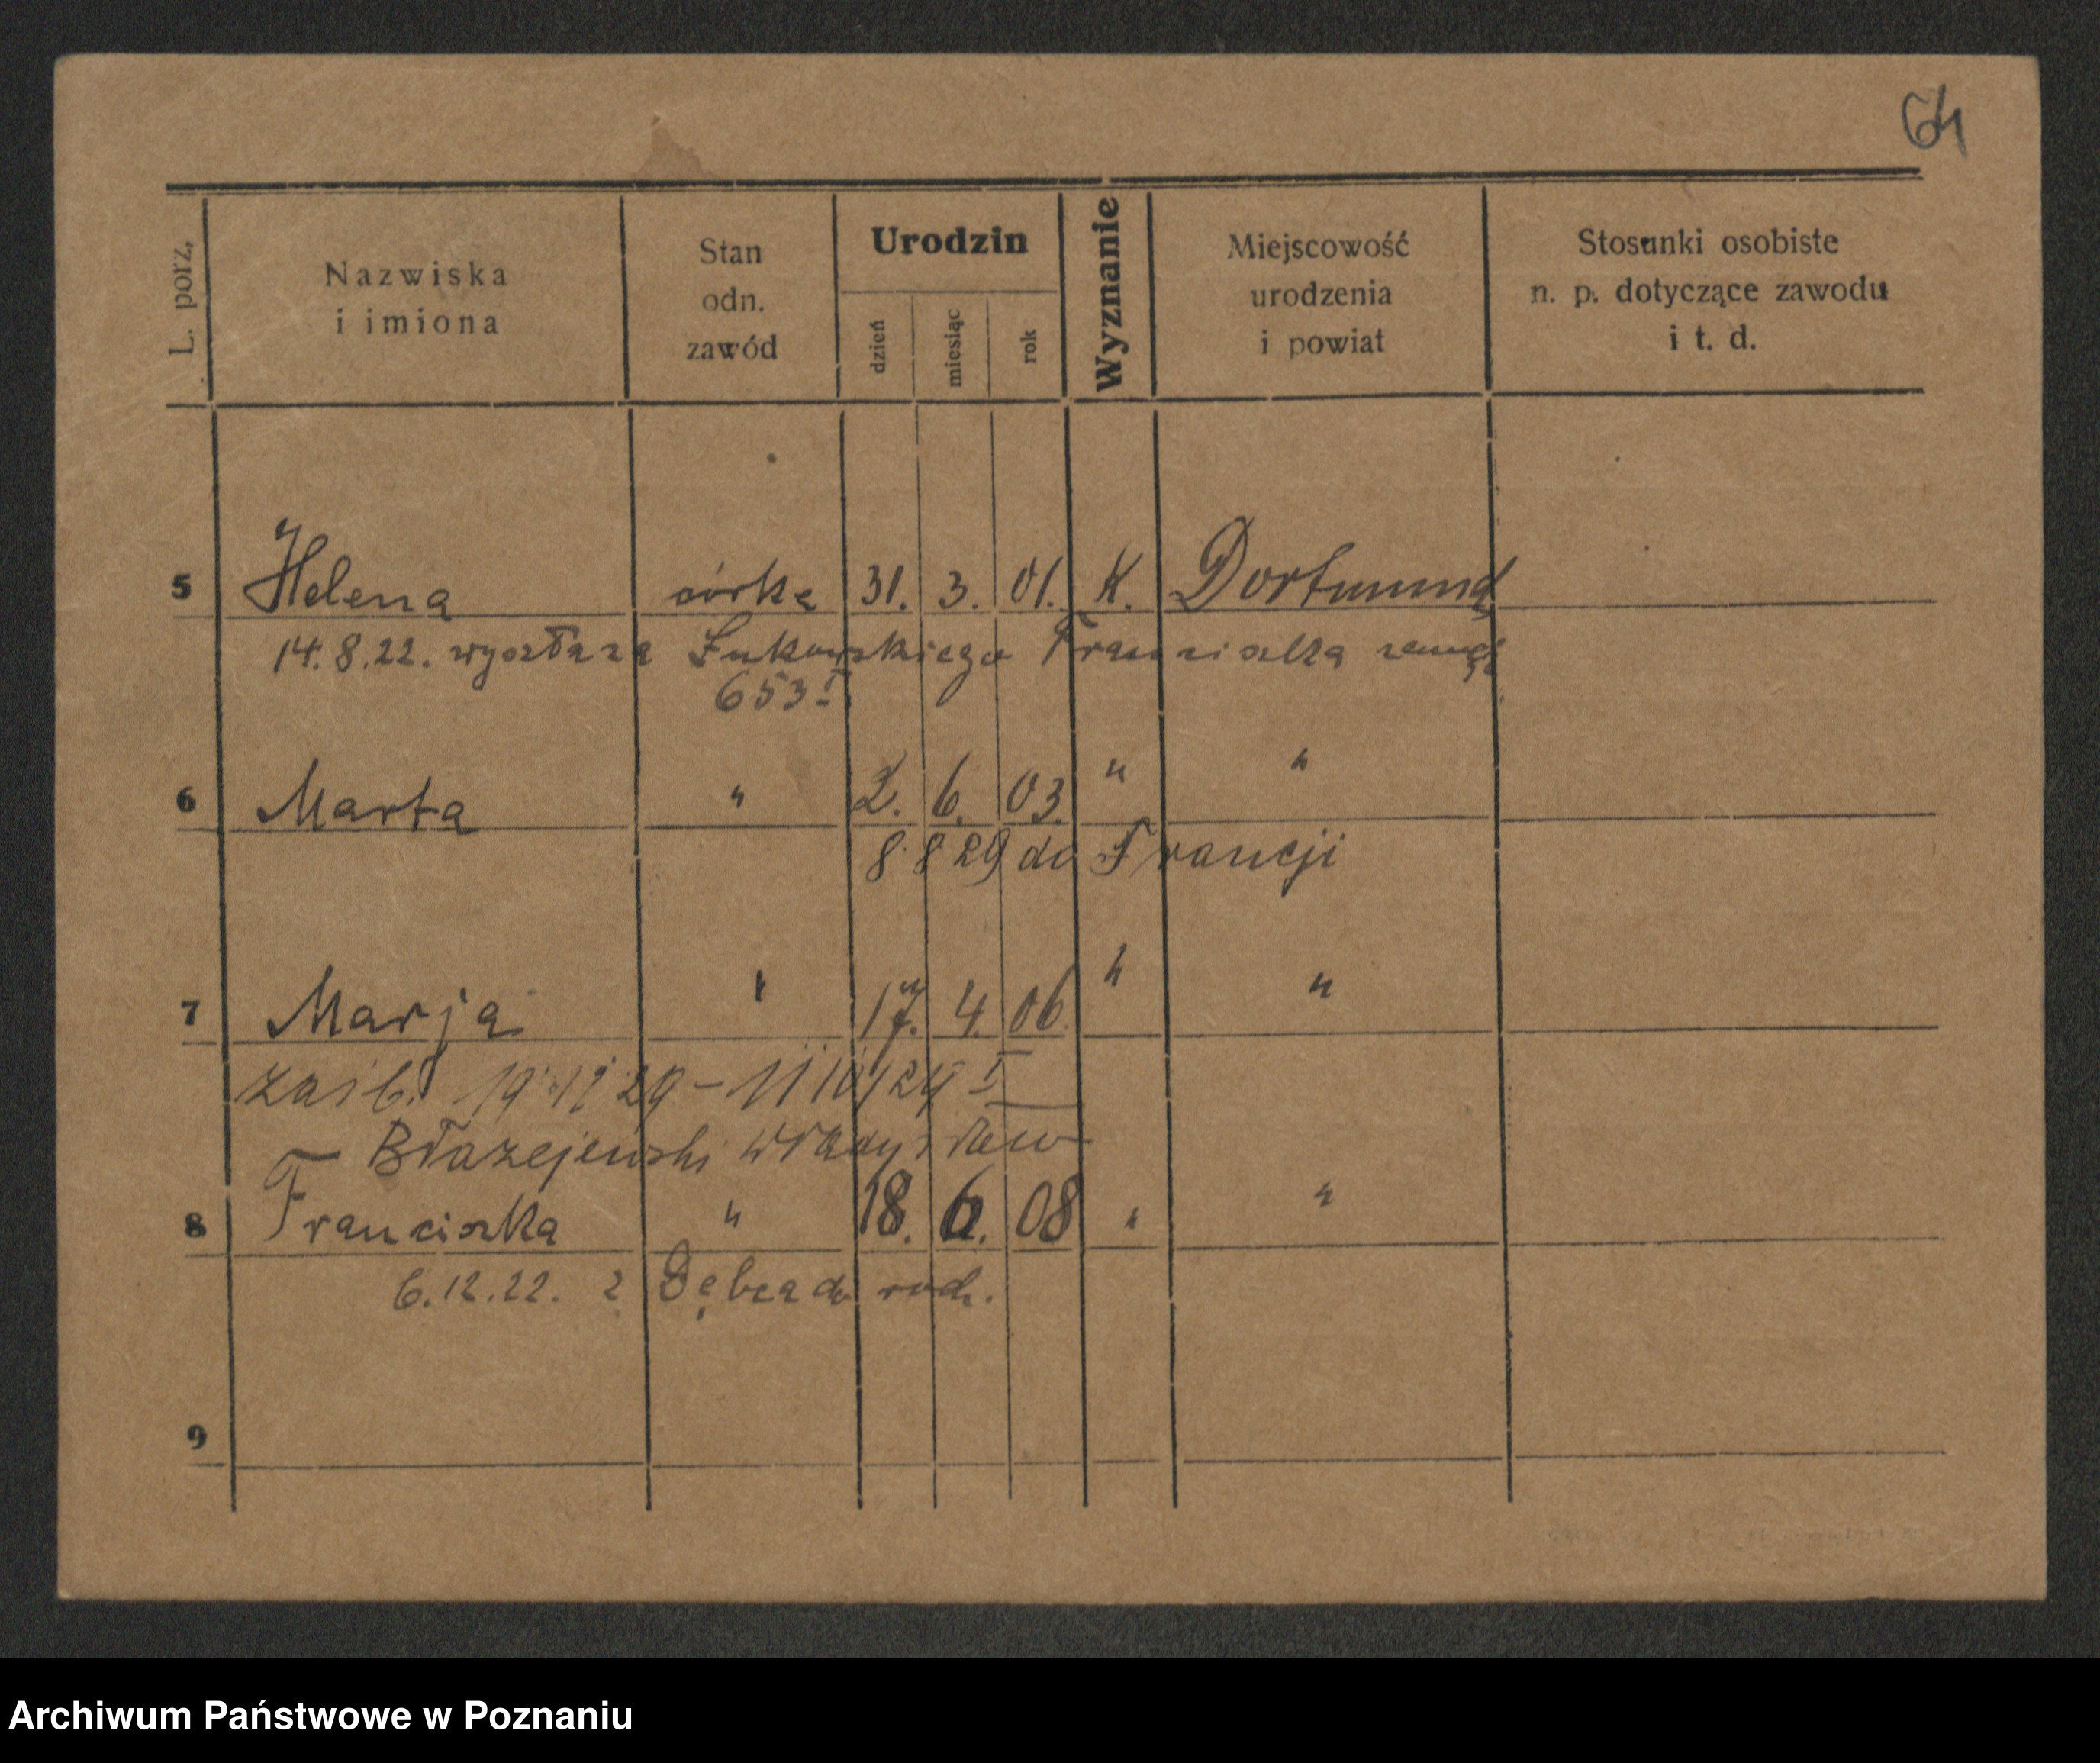 64
L. porz.
Nazwiska
i imiona
Stan
odn.
zawód
Urodzin
dzień
miesiąc
rok
Wyznanie
Miejscowość
urodzenia
i powiat
Stosunki osobiste
n. p. dotyczące zawodu
i t. d.
5 Helena córka 31. 3. 01. K. Dortmund
14.8.22. wyszła za Łukowskiego Franciszka
653 I
6 Marta " 2. 6. 03. " "
8 8 29 do Francji
7 Marja " 17. 4. 06. " "
29 – 11/10/29 I
Błażejewski Władysław
8 Franciszka " 18. 6. 08 " "
6.12.22. z Dębca do rodz.
9
Archiwum Państwowe w Poznaniu